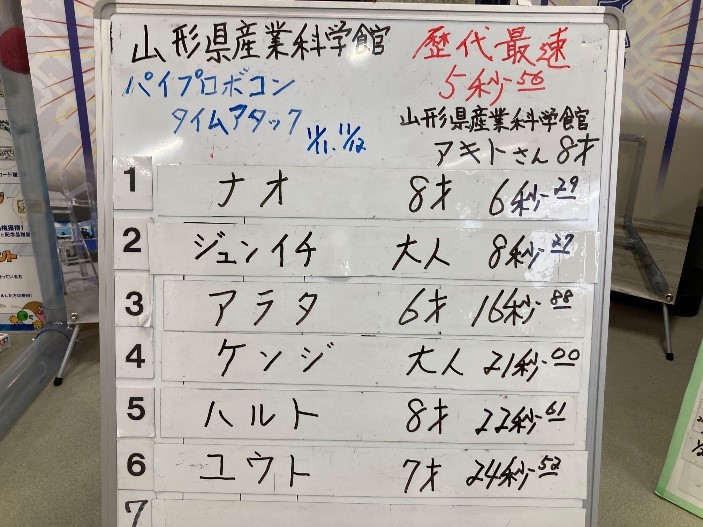 山形県産業科学館
歴代最速
5秒56
パイプロボコン
タイムアタック 11/11, 11/12
山形県産業科学館
アキトさん 8才
1 ナオ 8才 6秒29
2 ジュンイチ 大人 8秒27
3 アラタ 6才 16秒88
4 ケンジ 大人 21秒00
5 ハルト 8才 22秒61
6 ユウト 7才 24秒52
7